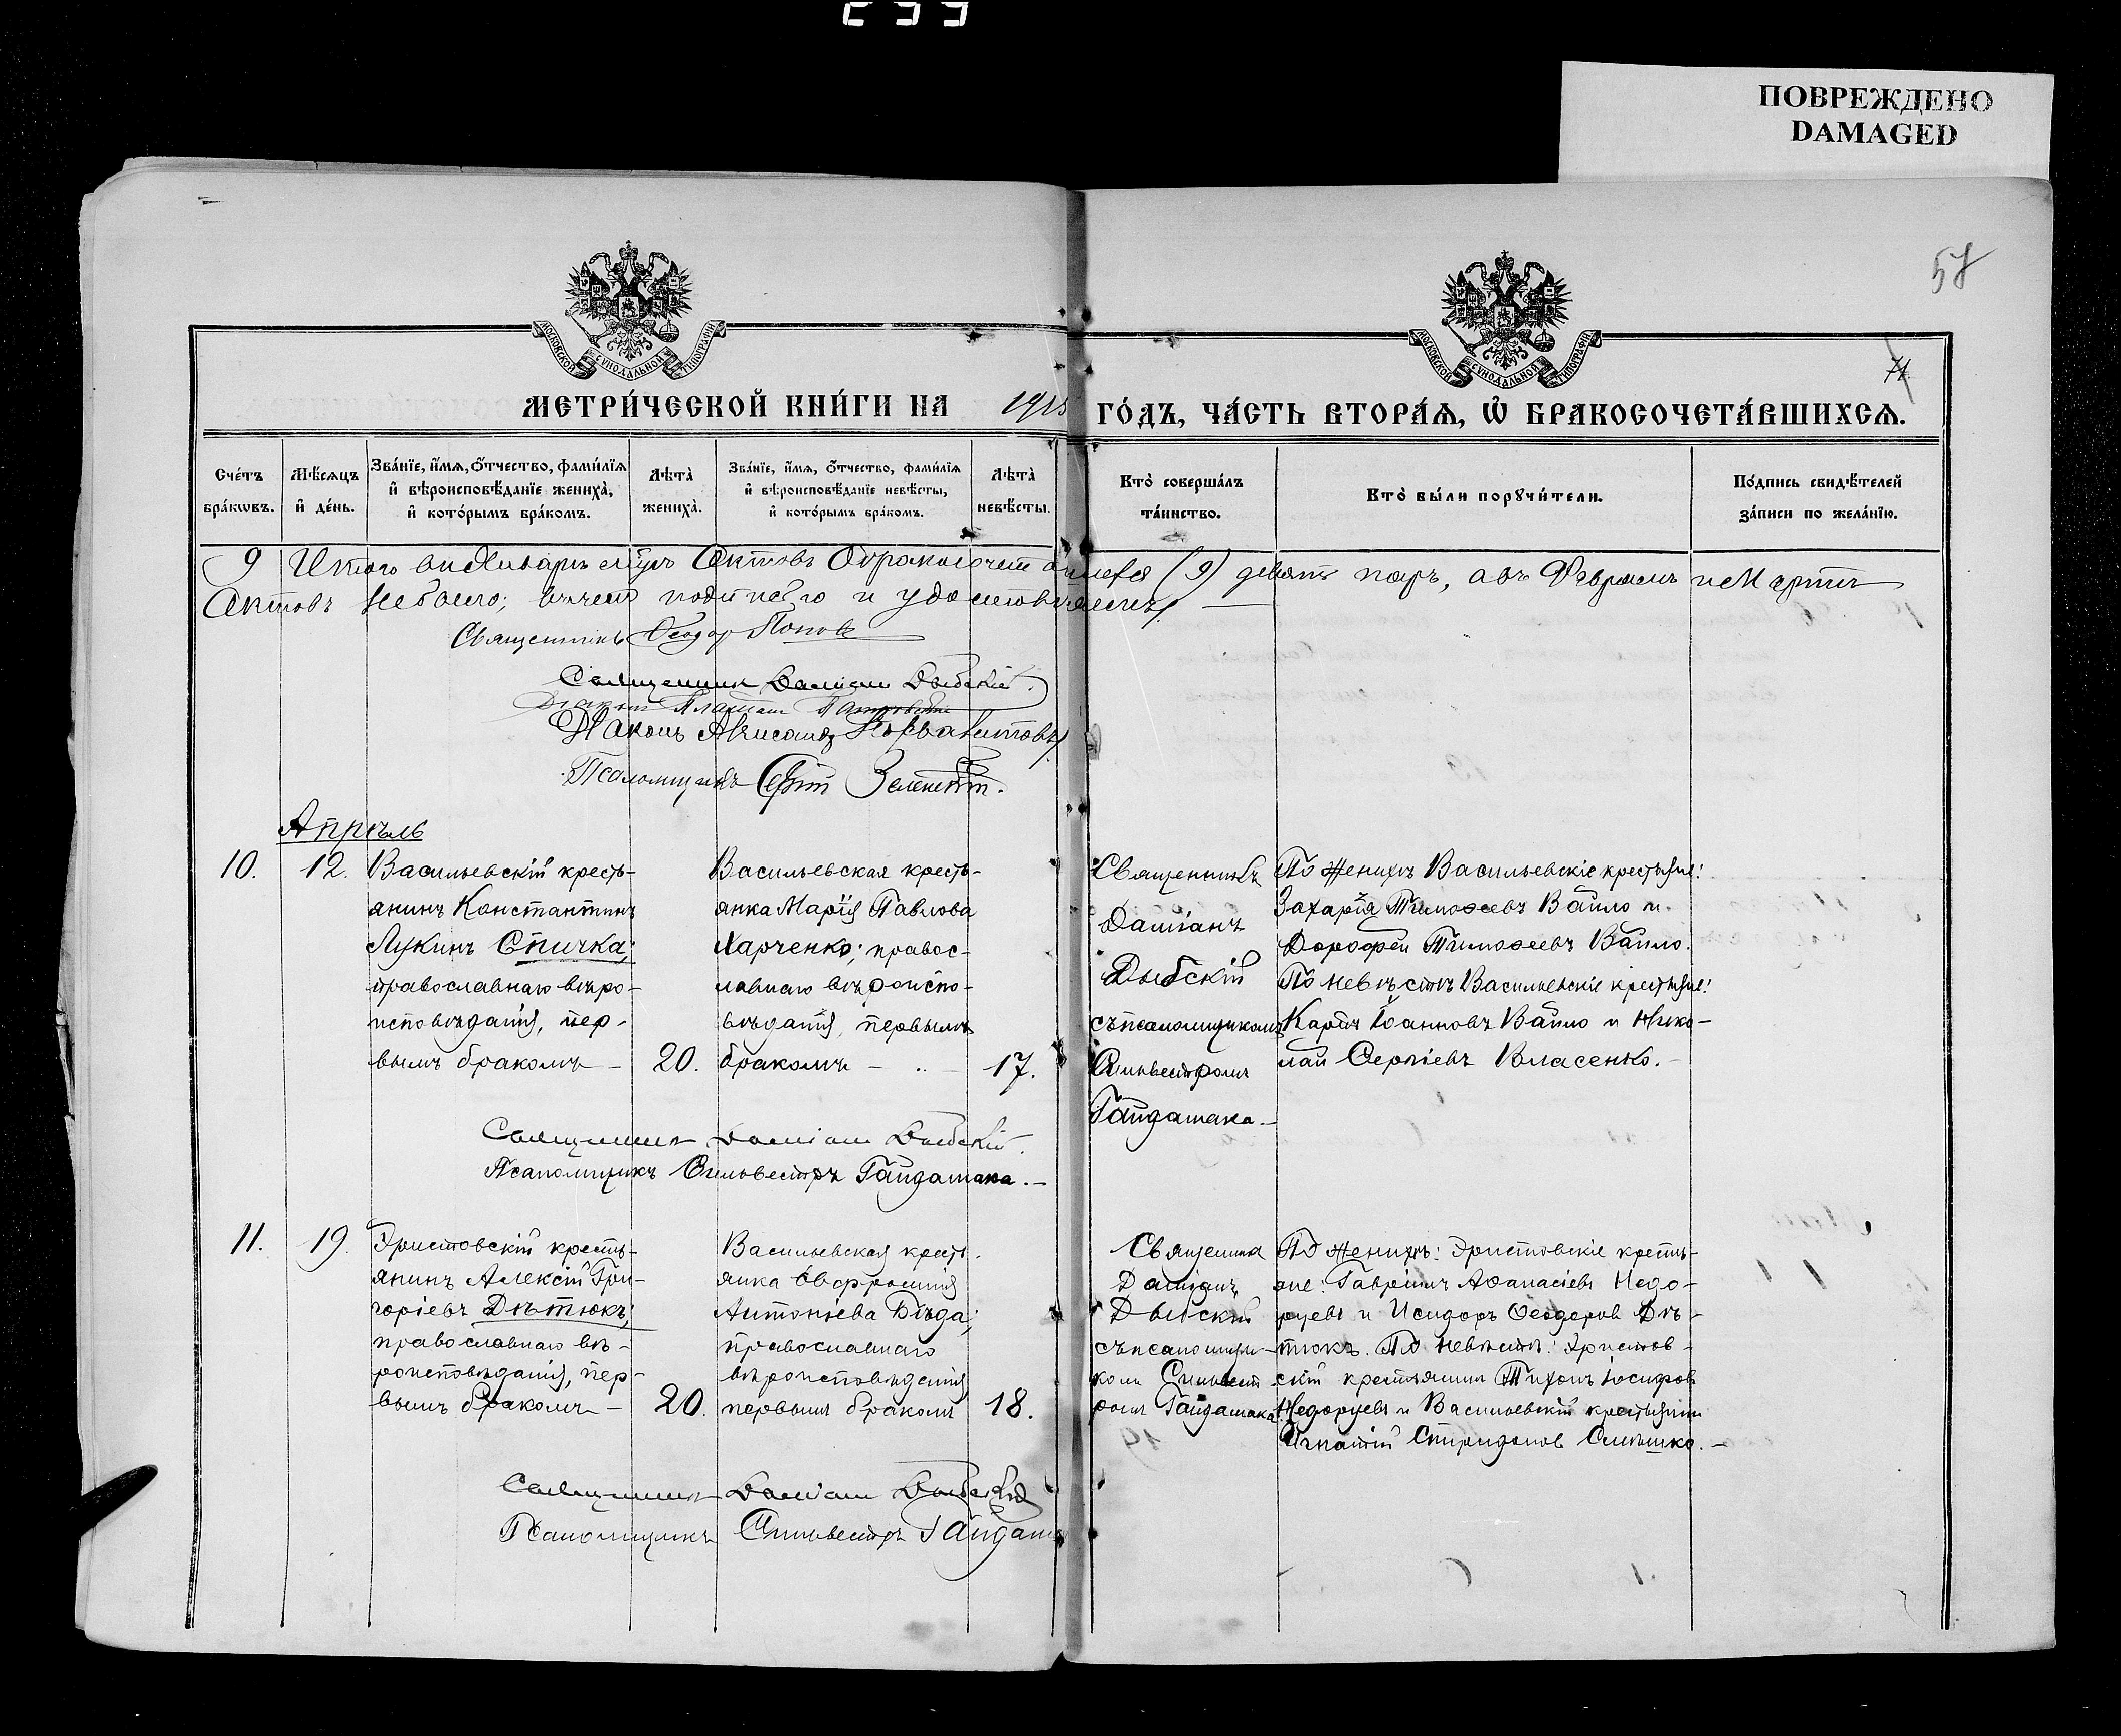 ПОВРЕЖДЕНО
DAMAGED
МОСКОВСКОЙ СУНОДАЛЬНОЙ ТИПОГРАФІИ
МОСКОВСКОЙ СУНОДАЛЬНОЙ ТИПОГРАФІИ
71
МЕТРИ́ЧЕСКОЙ КНИ́ГИ НА 1915 ГО́ДЪ, ЧА́СТЬ ВТОРА́Ѧ, Ѽ БРАКОСОЧЕТА́ВШИХСѦ.
Сче́тъ бра́кωвъ.
Мѣ́сѧцъ и҆ де́нь.
Зва́нїе, и҆́мѧ, ѻ҆́тчество, фами́лїѧ
и҆ вѣроисповѣ́данїе жениха̀,
и҆ кото́рымъ бра́комъ.
Лѣта̀ жениха̀.
Зва́нїе, и҆́мѧ, ѻ҆́тчество, фами́лїѧ
и҆ вѣроисповѣ́данїе невѣ́сты,
и҆ кото́рымъ бра́комъ.
Лѣта̀ невѣ́сты.
Кто̀ соверша́лъ та́инство.
Кто̀ бы́ли порꙋчи́тели.
По́дпись свидѣ́телей за́писи по жела́нїю.
9 Итого въ Январѣ мѣсяцѣ Актовъ О бракосочетавшихся (9) девять паръ, а въ Февралѣ и Мартѣ
Актовъ не было; въ чемъ подписью и удостовѣряемъ.
Священникъ Ѳеодоръ Поповъ
Священникъ Даміанъ Дыбскій.
Діаконъ Александръ
Псаломщикъ Сергій
Апрѣль
10. 12.
Васильевскій кресть-
янинъ Константинъ
Лукинъ Спичка;
православнаго вѣро-
исповѣданія, пер-
вымъ бракомъ – 20.
Васильевская кресть-
янка Марія Павлова
Харченко; правос-
лавнаго вѣроиспо-
вѣданія, первымъ
бракомъ – 17.
Священникъ
Даміанъ
Дыбскій
съ псаломщикомъ
Сильвестромъ
Гайдамака.
По женихѣ Васильевскіе крестьяне:
Захарія Тимоѳеевъ Вайло и
Дорофей Тимоѳеевъ Вайло.
По невѣстѣ Васильевскіе крестьяне:
Карпъ Іоанновъ Вайло и Нико-
лай Сергіевъ Власенко.
Священникъ Даміанъ Дыбскій.
Псаломщикъ Сильвестръ Гайдамака.
11. 19.
Христовскій кресть-
янинъ Алексій Гри-
горіевъ Дѣтюкъ;
православнаго вѣ-
роисповѣданія, пер-
вымъ бракомъ – 20.
Васильевская кресть-
янка Евфросинія
Антоніева Бѣда;
православнаго
вѣроисповѣданія
первымъ бракомъ 18.
Священника
Даміанъ
Дыбскій
съ псаломщи-
комъ Сильвест
ромъ Гайдамака.
По женихѣ: Христовскіе кресть-
яне: Гавріилъ Аѳанасіевъ Недо-
руевъ и Исидоръ Ѳеодоровъ Дѣ-
тюкъ. По невѣстѣ: Христов-
скій крестьянинъ Тихонъ Іосифовъ
Недоруевъ и Васильевскій крестьянинъ
Игнатій Спиридоновъ
Священникъ Даміанъ Дыбскій
Псаломщикъ Сильвестръ Гайдама